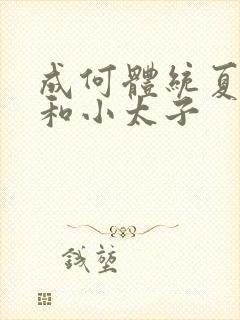 成何體統夏
和小太子
錢堃